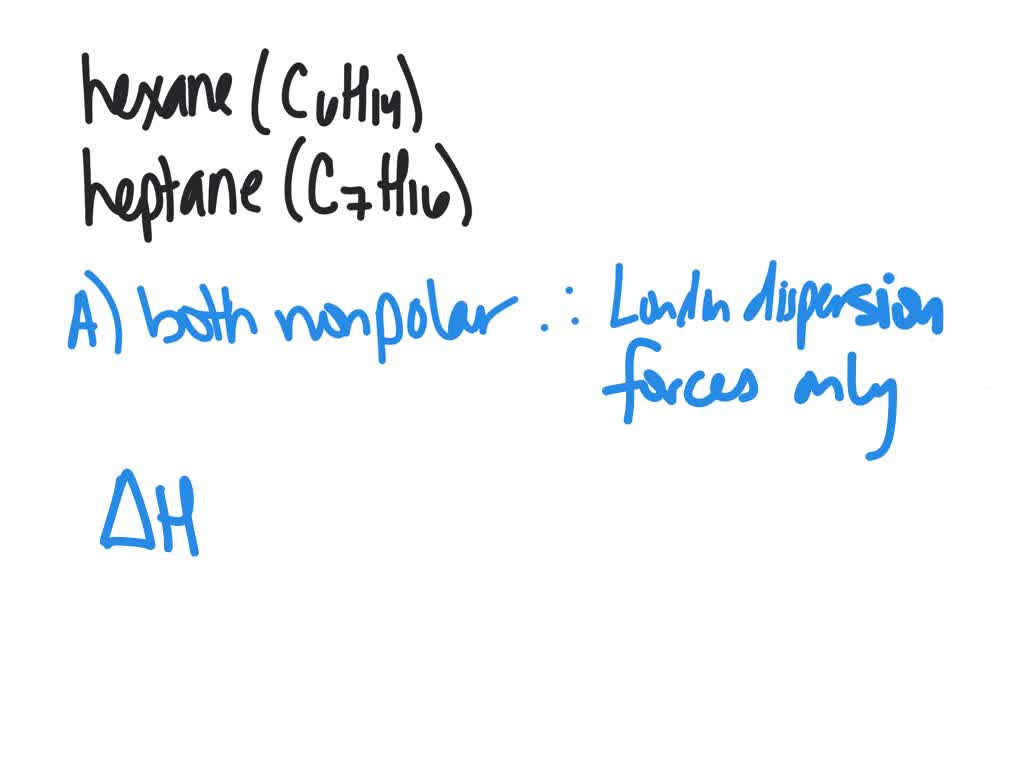 hexane (C₆H₁₄)
heptane (C₇H₁₆)
A) both nonpolar ∴ London dispersion
forces only
ΔH